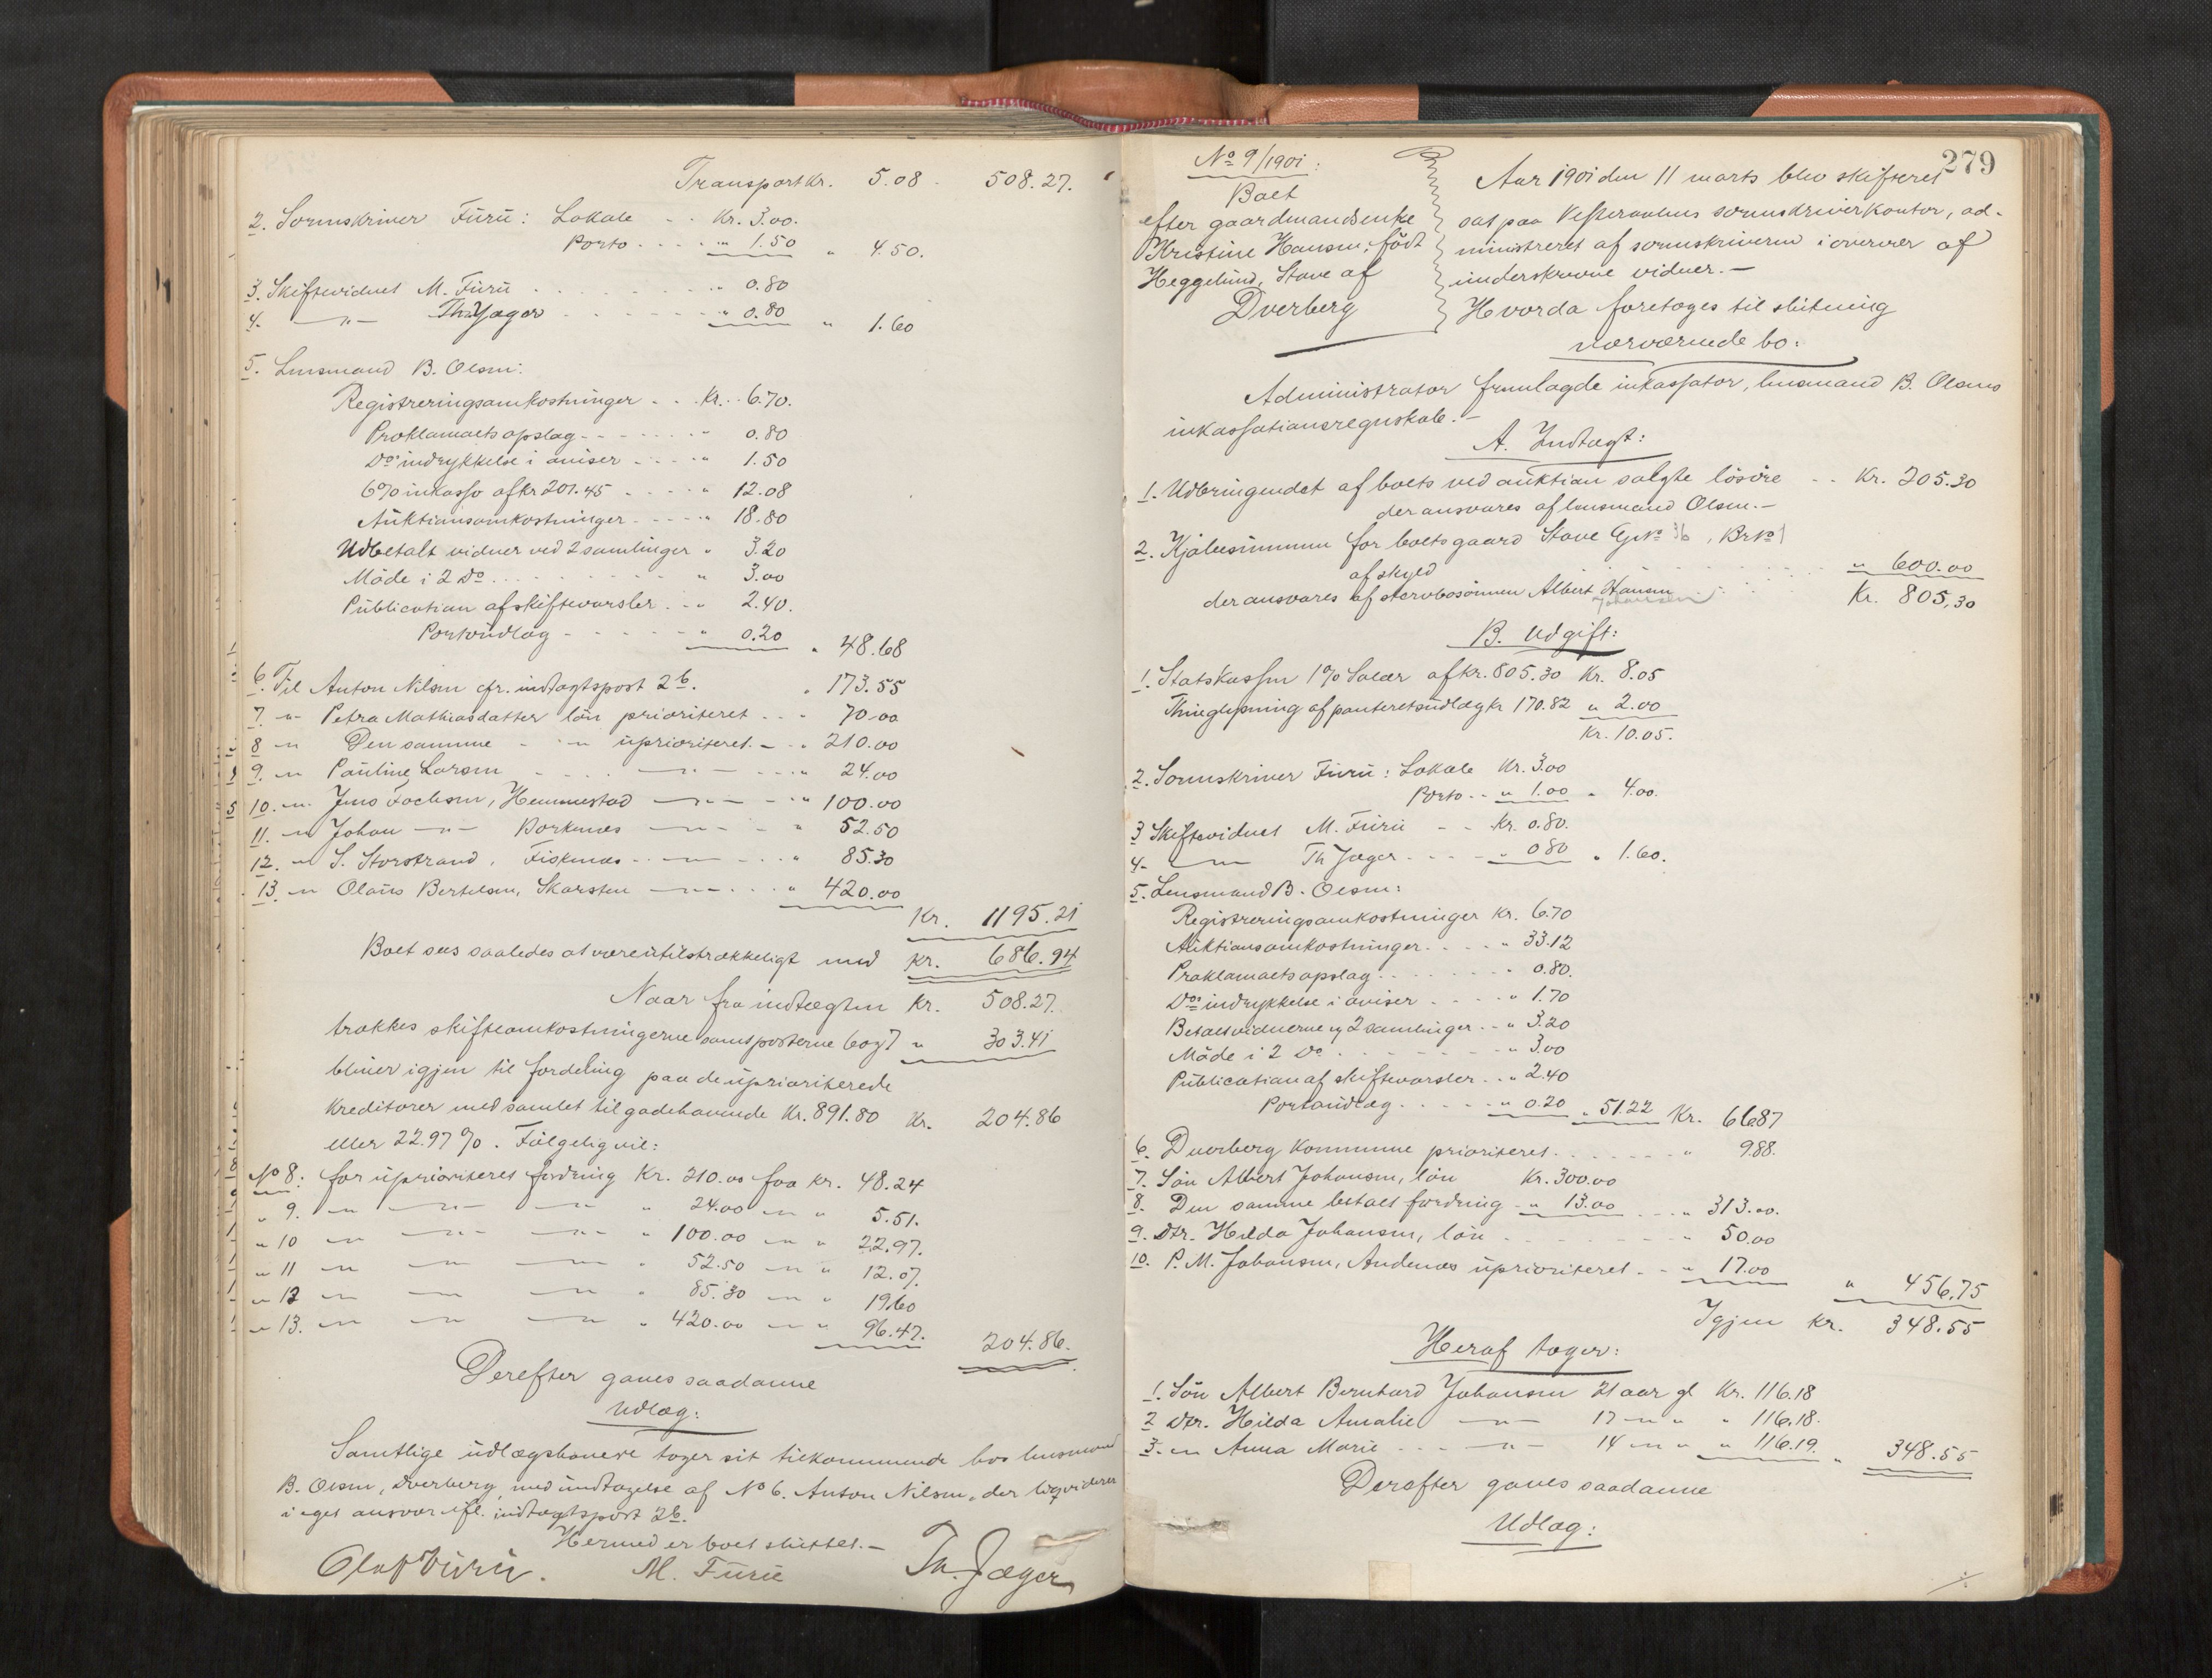 Transport Kr. 5.08 - 508.27.
2. Sorenskriver Furu: Lokale - - Kr. 3.00.
Porto - - - - " 1.50 " 4.50.
3. Skiftevidnet M. Furu - - - " 0.80
4. —"— Th. Jæger - - - " 0.80 " 1.60
5. Lensmand B. Olsen:
Registreringsomkostninger - - Kr. 6.70.
Proklamaets opslag - - - - " 0.80
Do indrykkelse i aviser - - - " 1.50
6% inkasso af kr 201.45 - - - " 12.08
Auktionsomkostninger - - - - " 18.80
Udbetalt vidner ved 2 samlinger " 3.20
Möde i 2 Do - - - - " 3.00
Publication af skiftevarsler - - " 2.40.
Portoudlæg - - - - " 0.20 " 48.68
6. Til Anton Nilsen cfr. indtægtspost 2b. " 173.55
7. -"- Petra Mathiasdatter lön prioriteret - - " 70.00
8 -"- Den samme - -"- uprioriteret - - " 210.00
9. -"- Pauline Larsen - - —"— - - " 24.00
10. -"- Jens Jochsen, Hemmestad —"— - " 100.00
11. -"- Johan —"— Borkenes —"— - " 52.50
12. -"- S. Storstrand, Fiskenes - - —"— - - " 85.30
13 -"- Olaus Bertelsen, Skarsten —"— - - " 420.00
Kr. 1195.21
Boet sees saaledes at være utilstrækkeligt med Kr. 686.94
Naar fra indtægten Kr. 508.27.
trækkes skifteomkostningerne samt posterne 6 og 7 " 303.41
bliver igjen til fordeling paa de uprioriterede
kreditorer med samlet tilgodehavende Kr. 891.80 Kr. 204.86
eller 22.97 %. Fölgelig vil:
No 8: for uprioriteret fordring Kr. 210.00 faa kr. 48.24
" 9. -"- —"— -"- " 24.00 -"- " 5.51.
" 10 -"- —"— -"- " 100.00 -"- " 22.97.
" 11 -"- —"— -"- " 52.50 -"- " 12.07.
" 12 -"- —"— -"- " 85.30 -"- " 19.60
" 13. -"- —"— -"- " 420.00 -"- " 96.47. 204.86.
Derefter gaves saadanne
Udlæg:
Samtlige udlægshavere tager sit tilkommende hos lensmand
B. Olsen, Dverberg, med undtagelse af No 6. Anton Nilsen, der liqviderer
i eget ansvar ifl. indtægtspost 2b.
Hermed er boet sluttet.-
Olaf Furu. M. Furu Th. Jæger
279
No 9/1901:
Boet
efter gaardmandsenke
Kristine Hansen, födt
Heggelund, Stave af
Dverberg
Aar 1901 den 11 marts blev skifteret
sat paa Vesteraalens sorenskriverkontor, ad-
ministreret af sorenskriveren i overvær af
underskrevne vidner.—
Hvorda foretoges til slutning
nærværende bo:
Administrator fremlagde inkassator, lensmand B. Olsens
inkassationsregnskab.-
A. Indtægt:
1. Udbringendet af boets ved auktion solgte lösöre - - Kr. 205.30
der ansvares af lensmand Olsen.-
2. Kjöbesummen for boets gaard Stave Gno , Brno 1
af skyld " 600.00
der ansvares af stervbosönnen Albert Hansen Kr. 805,30
Johansen
B. Udgift:
1. Statskassen 1% Salær af kr. 805.30 Kr. 8.05
Thinglysning af panteretsudlæg kr 170.82 " 2.00
Kr. 10.05.
2. Sorenskriver Furu: Lokale Kr. 3.00
Porto - - " 1.00 " 4.00.
3 Skiftevidnet M. Furu - - Kr. 0.80.
4. —"— Th Jæger - - - " 0.80 " 1.60.
5. Lensmand B. Olsen:
Registreringsomkostninger Kr. 6.70
Auktionsomkostninger - - - " 33.12
Proklamaets opslag - - - - " 0.80.
Dos indrykkelse i aviser - - - " 1.70
Betalt vidnerne ved 2 samlinger - - " 3.20
Möde i 2 Do - - - - " 3.00
Publication af skiftevarsler - - " 2.40
Portoudlæg - - - - " 0.20 " 51.22 Kr. 66.87
6. Dverberg kommune prioriteret - - - - " 9.88.
7. Sön Albert Johansen, lön Kr. 300.00
8. Den samme betalt fordring - " 13.00 - - " 313.00.
9. Dtr. Hilda Johansen, lön - - - - " 50.00
10. P. M. Johansen, Andenes uprioriteret - - " 17.00 " 456.75
Igjen Kr. 348.55
Heraf tager:
1. Sön Albert Bernhard Johansen 21 aar gl Kr. 116.18
2 Dtr. Hilda Amalie —"— 17 -"- " " 116.18.
3. -"- Anna Marie - - —"— 14 -"- " " 116.19. " 348.55
Derefter gaves saadanne
Udlæg: